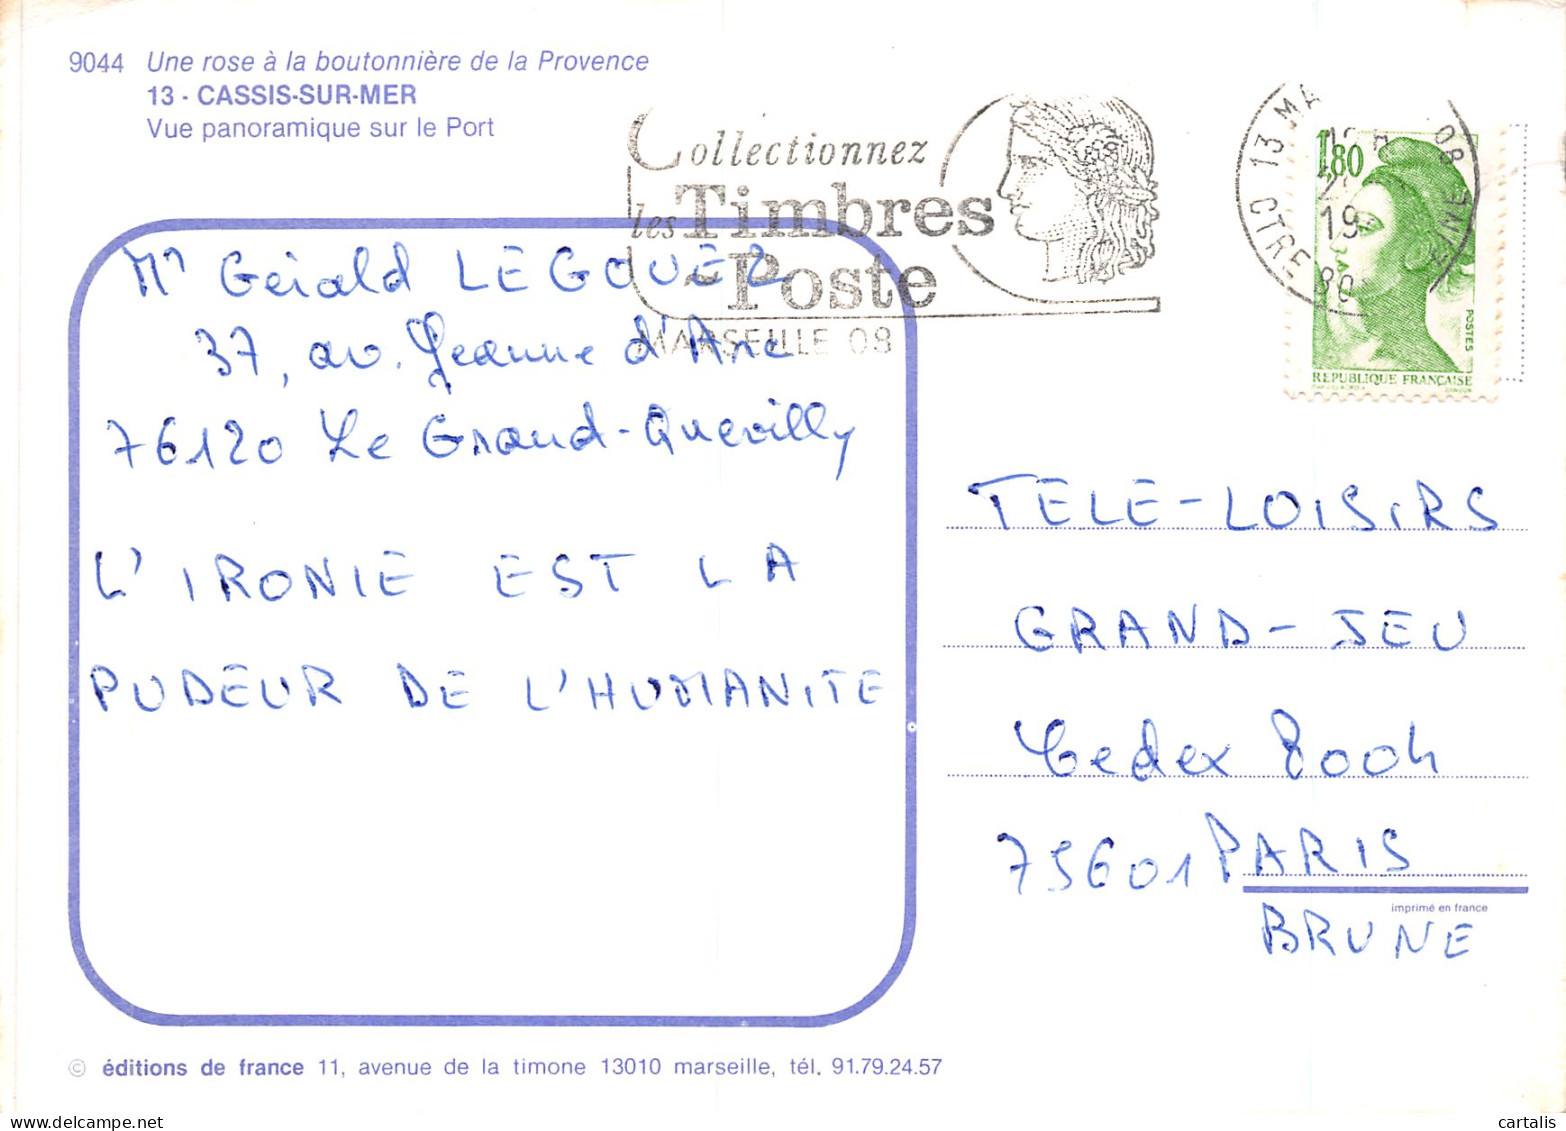 9044 Une rose à la boutonnière de la Provence
13 - CASSIS-SUR-MER
Vue panoramique sur le Port
Collectionnez
les Timbres
de Poste
MARSEILLE 08
13 MA
08
CTRE
19
1,80
POSTES
REPUBLIQUE FRANÇAISE
Mr Gérald LEGOUEZ
37, av. Jeanne d'Arc
76120 Le Grand-Quevilly
L'IRONIE EST LA
PUDEUR DE L'HUMANITE
TELE-LOISIRS
GRAND-JEU
Cedex 8004
75601 PARIS
BRUNE
imprimé en france
© éditions de france 11, avenue de la timone 13010 marseille, tél. 91.79.24.57
cartalis